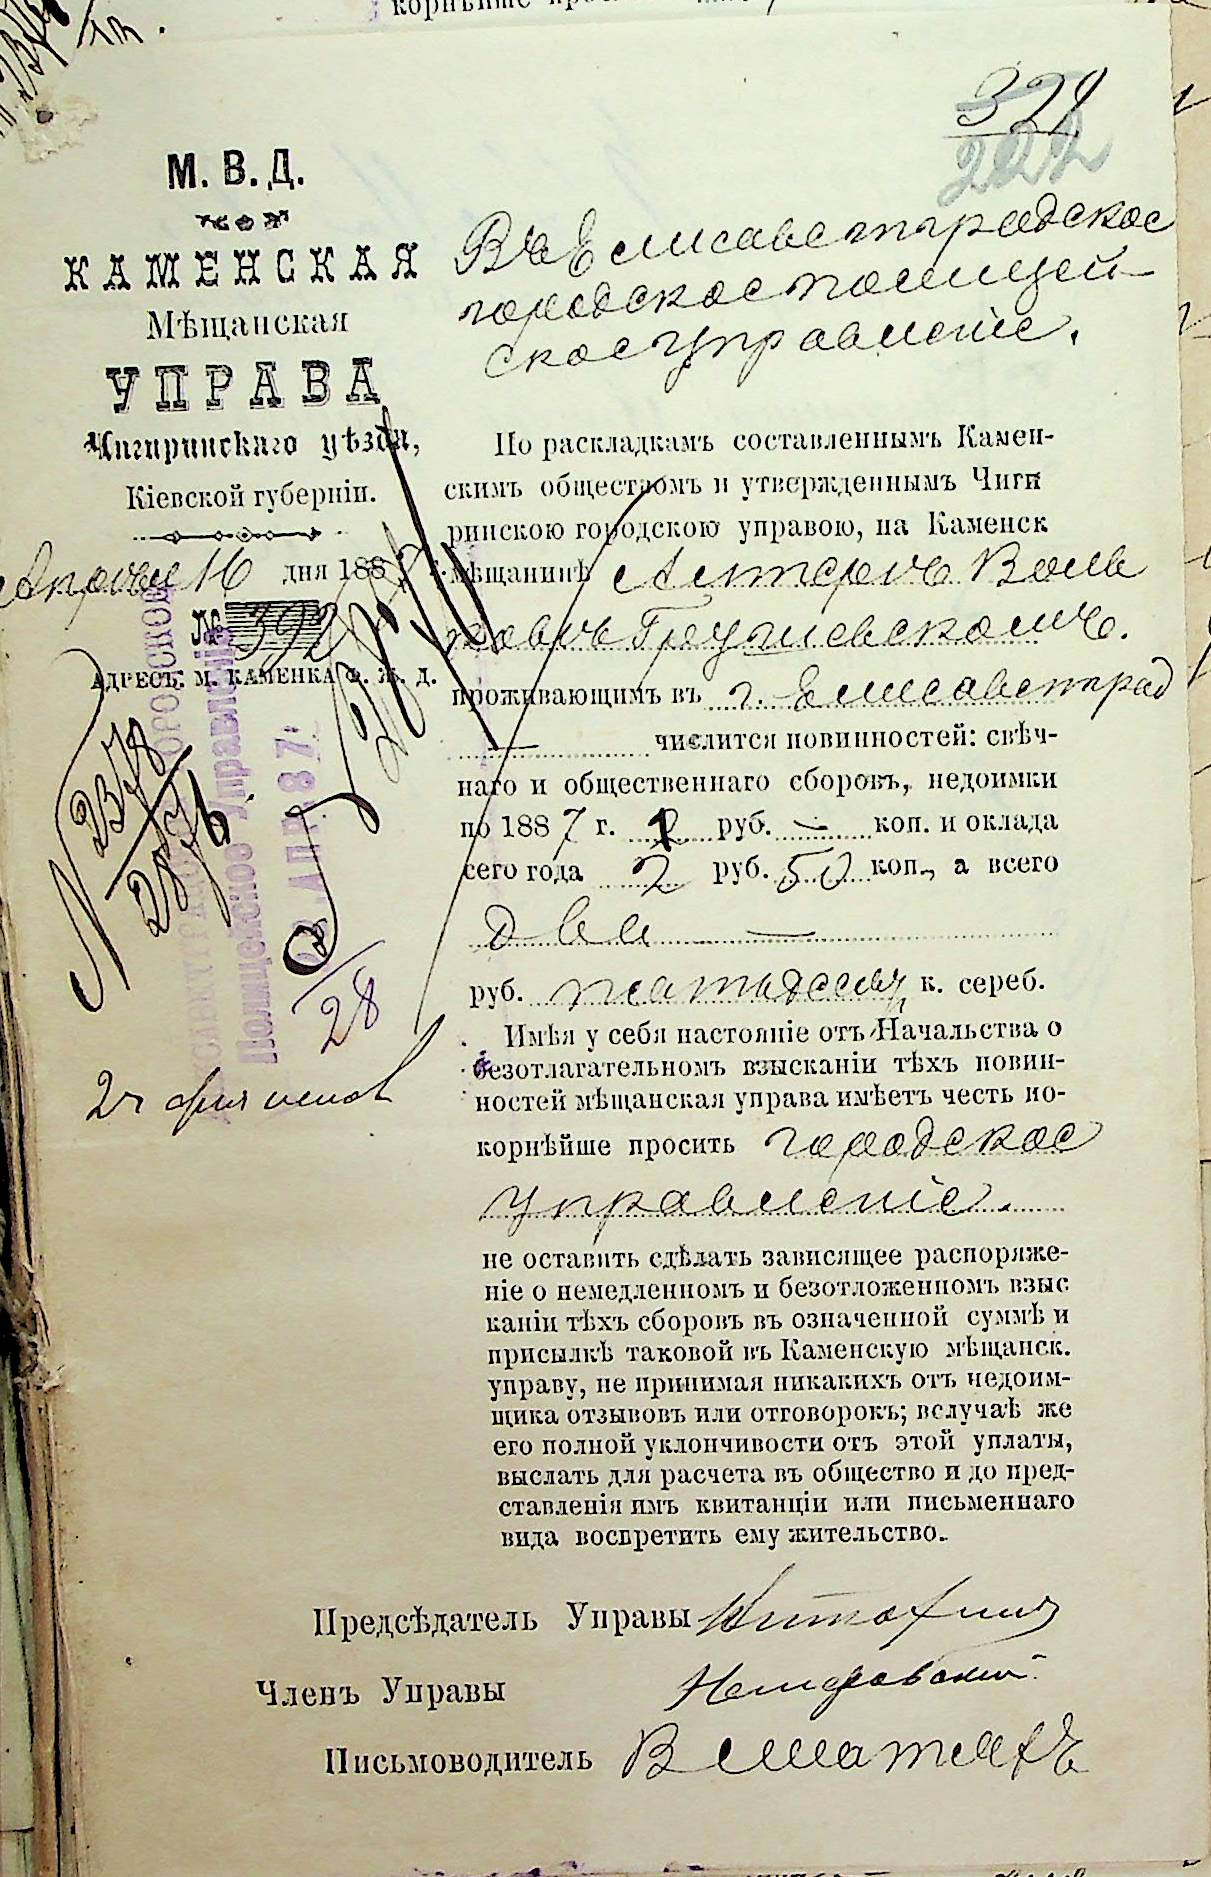 328
222
М. В. Д.
КАМЕНСКАЯ
Мѣщанская
УПРАВА
Чигиринскаго уѣзда,
Кіевской губерніи.
Апрѣля 16 дня 1887 г.
№ 392
АДРЕСЪ: М. КАМЕНКА Ф. Ж. Д.
Въ Елисаветградское
городское полицей-
ское управленіе.
По раскладкамъ составленнымъ Камен-
скимъ обществомъ и утвержденнымъ Чиги
ринскою городскою управою, на Каменск
мѣщанинѣ Алтеръ Воль
ковъ Грушевскомъ.
проживающимъ въ г. Елисаветград
числится повинностей: свѣч-
наго и общественнаго сборовъ, недоимки
по 1887 г. руб. — коп. и оклада
сего года 2 руб. 50 коп., а всего
два —
руб. пятьдесят к. сереб.
Имѣя у себя настояніе отъ Начальства о
безотлагательномъ взысканіи тѣхъ повин-
ностей мѣщанская управа имѣетъ честь по-
корнѣйше просить городское
управленіе.
не оставить сдѣлать зависящее распоряже-
ніе о немедленномъ и безотложенномъ взыс
каніи тѣхъ сборовъ въ означенной суммѣ и
присылкѣ таковой въ Каменскую мѣщанск.
управу, не принимая никакихъ отъ недоим-
щика отзывовъ или отговорокъ; вслучаѣ же
его полной уклончивости отъ этой уплаты,
выслать для расчета въ общество и до пред-
ставленія имъ квитанціи или письменнаго
вида воспретить ему жительство.
Полицейское Управленіе
АПР. 87
N 2378
28
Предсѣдатель Управы
Членъ Управы
Письмоводитель